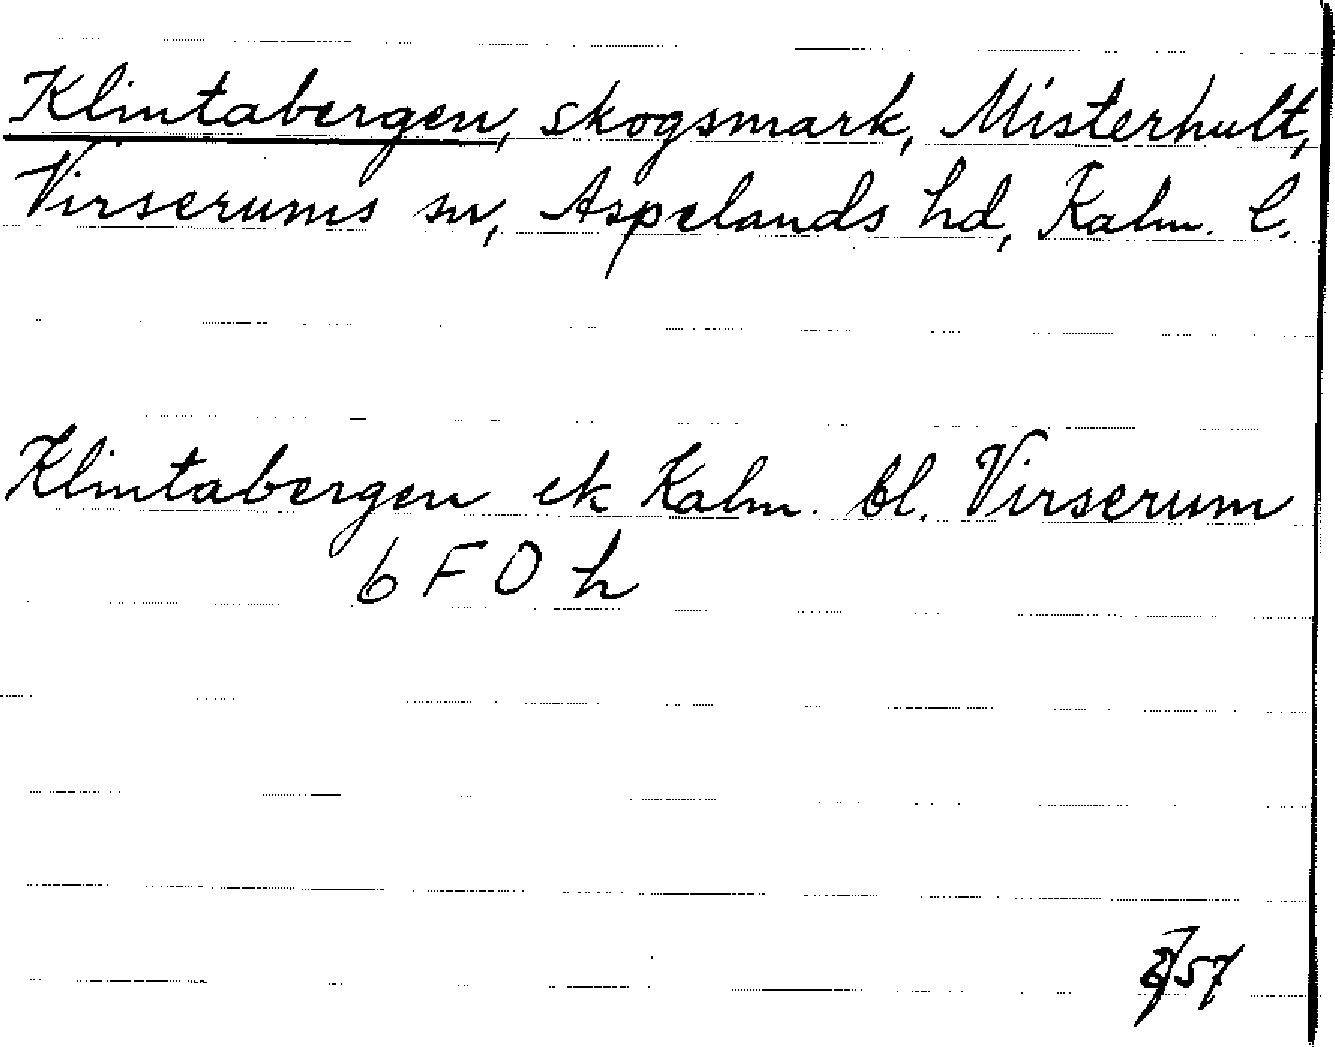 Klintabergen, skogsmark, Misterhult,
Virserums sn, Aspelands hd, Kalm. l.
Klintabergen ek Kalm. bl. Virserum
6 F O h